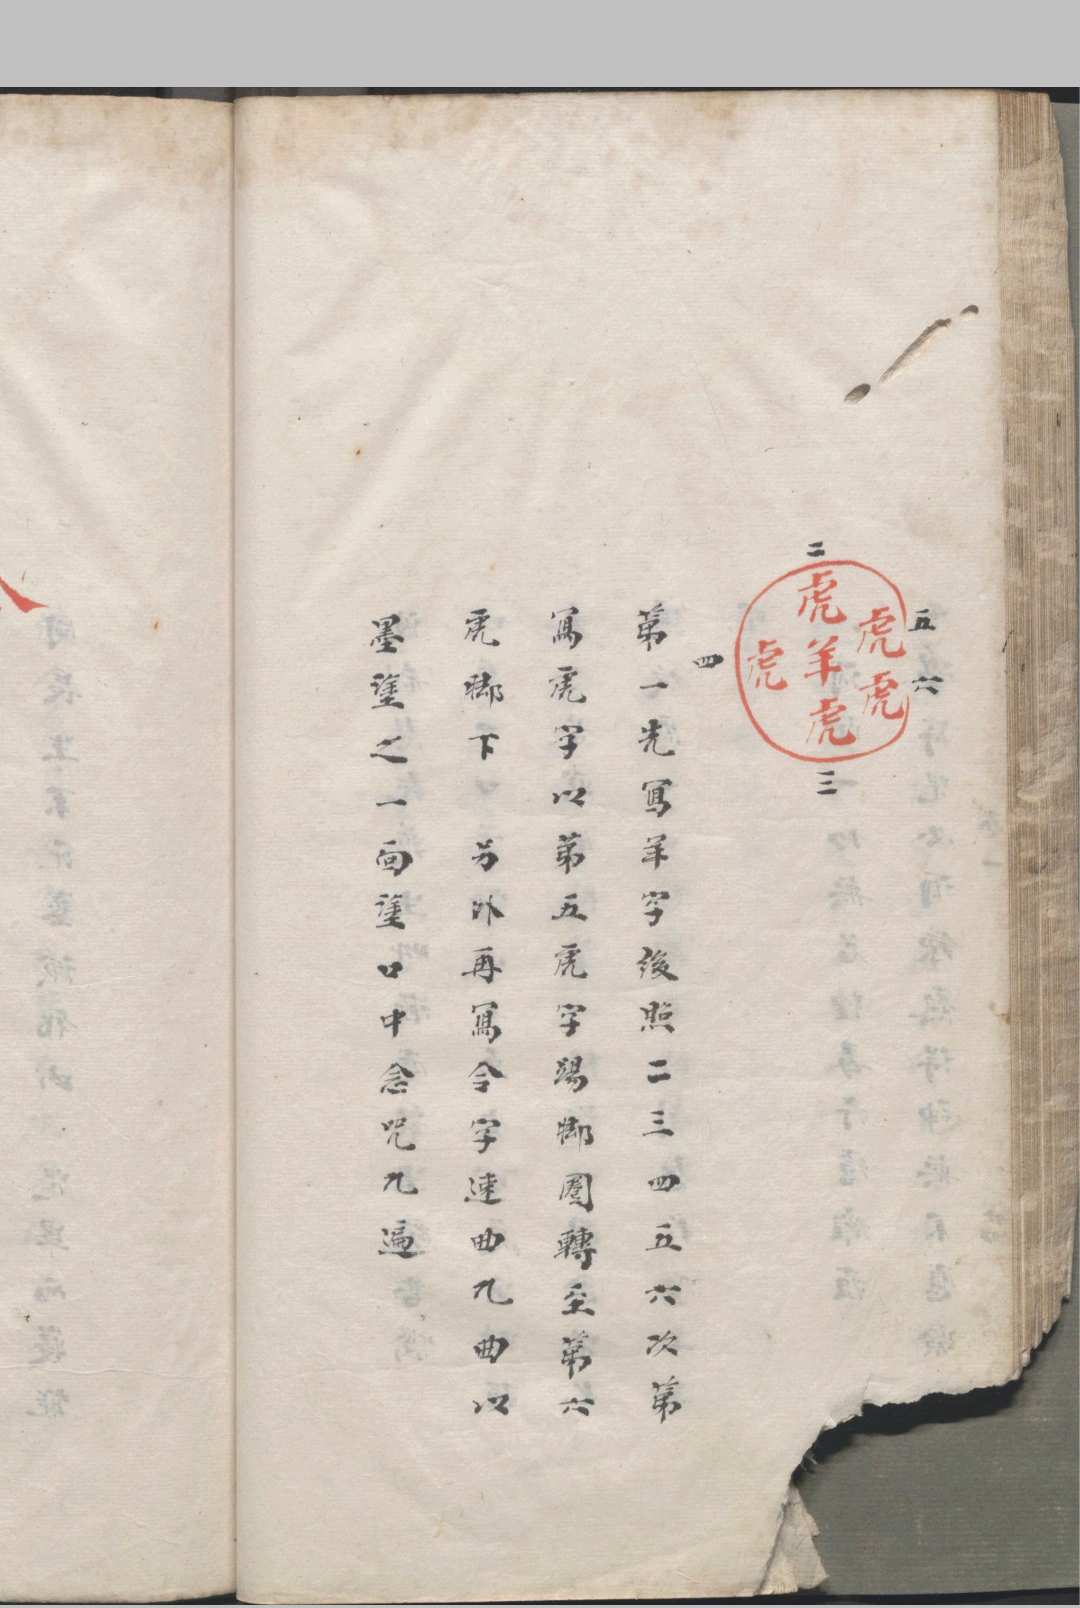 二
虎 虎 五
虎 羊 虎 六
虎
三
四
第一先寫羊字後照二三四五六次第
寫虎字以第五虎字踢腳圈轉至第六
虎腳下另外再寫令字連曲九曲以
墨塗之一面塗口中念咒九遍